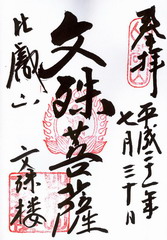 奉拝
平成二十一年
七月三十日
文殊菩薩
比叡山
文殊楼